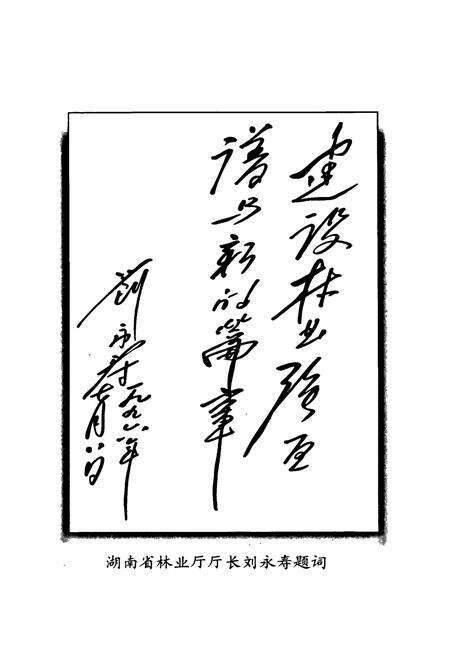 建设林业强区
谱写新的篇章
刘永寿 一九九六年
七月八日
湖南省林业厅厅长刘永寿题词